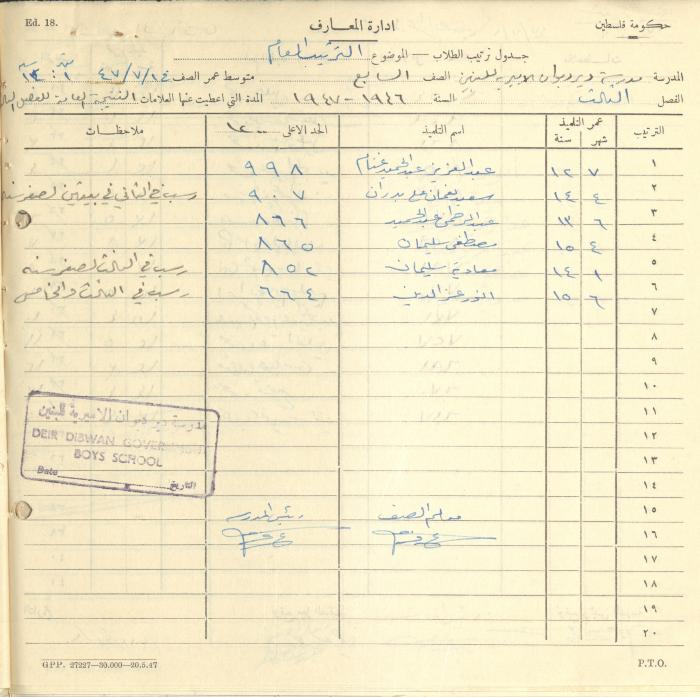 Ed. 18.
ادارة المعارف
حكومة فلسطين
جدول ترتيب الطلاب — الموضوع الترتيب العام
المدرسة مدرسة ديردبوان الاميرية للبنين الصف السابع متوسط عمر الصف ٤٧/٧/١٤
الفصل الثالث السنة ١٩٤٦ - ١٩٤٧ المدة التي اعطيت عنها العلامات النتيجة العامة للفصل
الترتيب عمر التلميذ شهر سنة اسم التلميذ الحد الاعلى ١٢٠٠ ملاحظات
١ ٧ ١٢ عبد العزيز عبد الحميد غنام ٩٩٨
٢ ٤ ١٤ سعيد نعمان علي بدران ٩٠٧ رسب في الثاني في
٣ ٦ ١٣ عبد الرحمن عبد الحميد ٨٦٦
٤ ٤ ١٥ مصطفى سليمان ٨٦٥
٥ ١ ١٤ معاوية سليمان ٨٥٢ رسب في الثالث لصغر سنه
٦ ٦ ١٥ انور عز الدين ٦٦٤ رسب في الثالث والخامس
٧
٨
٩
١٠
١١
١٢
١٣
١٤
١٥
١٦
١٧
١٨
١٩
٢٠
مدرسة دير دبوان الاميرية للبنين
DEIR DIBWAN GOVER
BOYS SCHOOL
Date التاريخ
معلم الصف رئيس المدرسة
GPP. 27227—30.000—20.5.47
P.T.O.